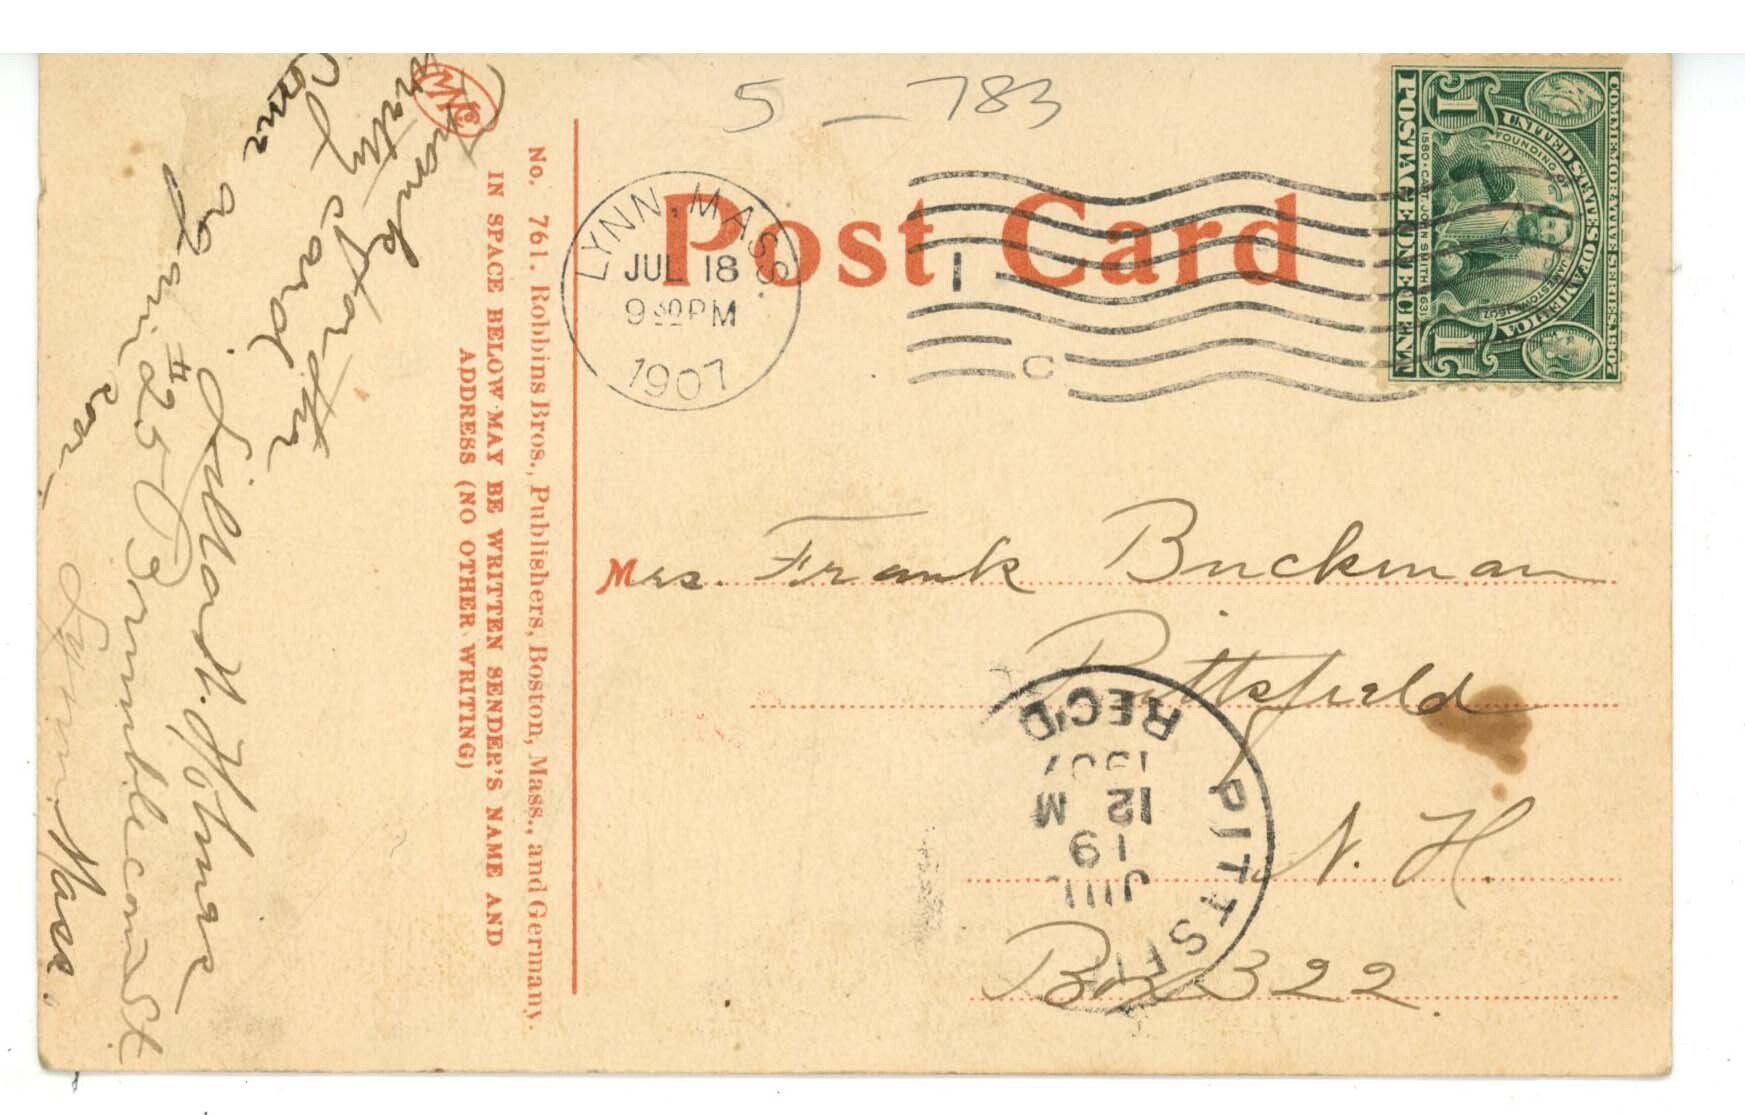 5 — 783
Post Card
LYNN, MASS
JUL 18
9 30 PM
1907
1
C
COMMEMORATIVE SERIES 1907
UNITED STATES OF AMERICA
FOUNDING OF JAMESTOWN 1607
1580 · CAPT. JOHN SMITH · 1631
1 1
POSTAGE ONE CENT
No. 761. Robbins Bros., Publishers, Boston, Mass., and Germany.
IN SPACE BELOW MAY BE WRITTEN SENDER'S NAME AND
ADDRESS (NO OTHER WRITING)
Thank for the
pretty card
Come again.
H. Holmes
#25 Brimblecom St
Lynn Mass.
Mrs. Frank Buckman
Pittsfield
N. H.
Box 322.
PITTSFI
JUL
19
12 M
1907
REC'D